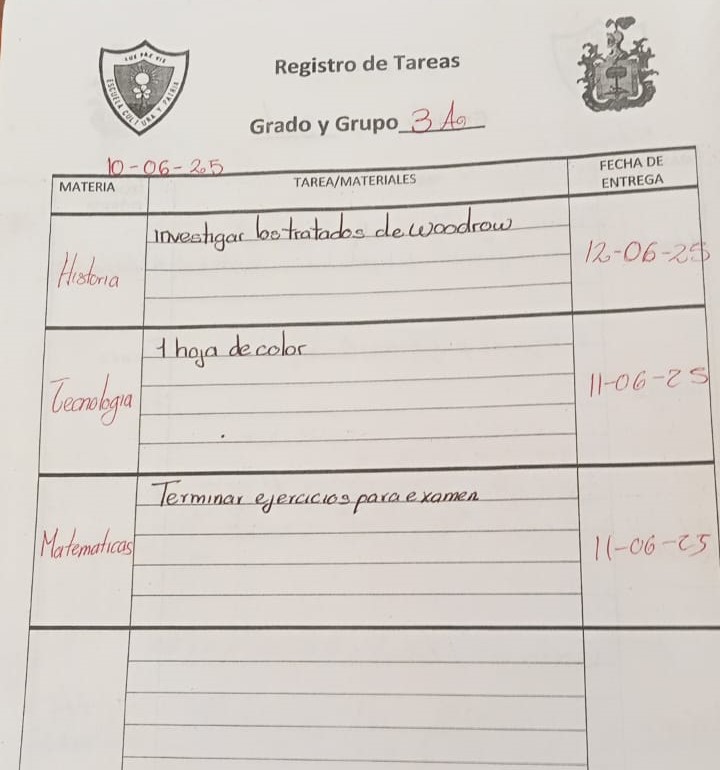 Registro de Tareas
Grado y Grupo 3 Ao
10-06-25
MATERIA TAREA/MATERIALES FECHA DE ENTREGA
Historia
Investigar los tratados de woodrow
12-06-25
Tecnologia
1 hoja de color
11-06-25
Matematicas
Terminar ejercicios para examen
11-06-25